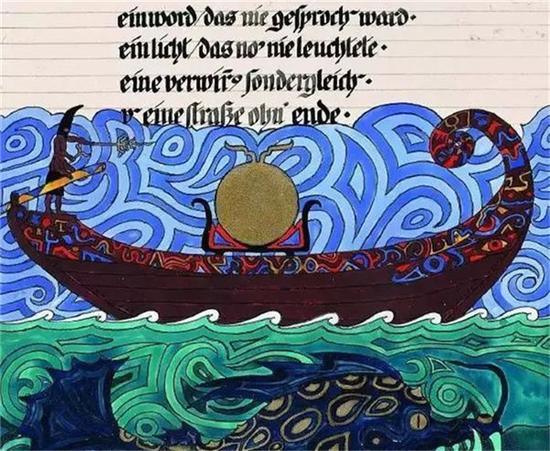 ein word / das nie gesproch- ward ·
ein licht / das no' nie leuchtete ·
eine verwirrg sondergleich ·
u eine straße ohn' ende ·